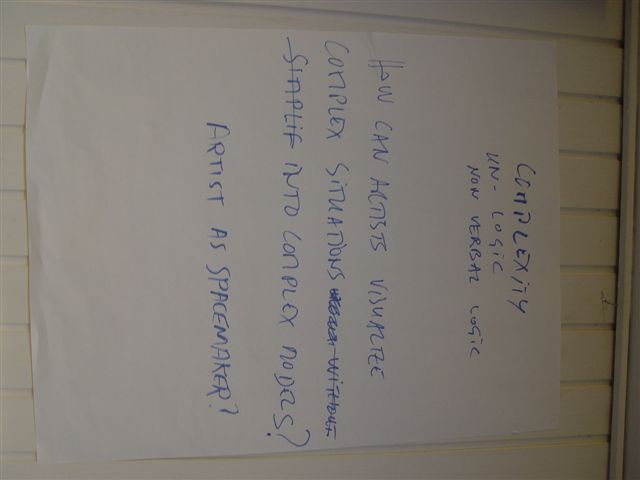 COMPLEXITY
UN-LOGIC
NON VERBAL LOGIC
HOW CAN ARTISTS VISUALIZE
COMPLEX SITUATIONS WITHOUT
SIMPLIF INTO COMPLEX MODELS?
ARTIST AS SPACEMAKER?